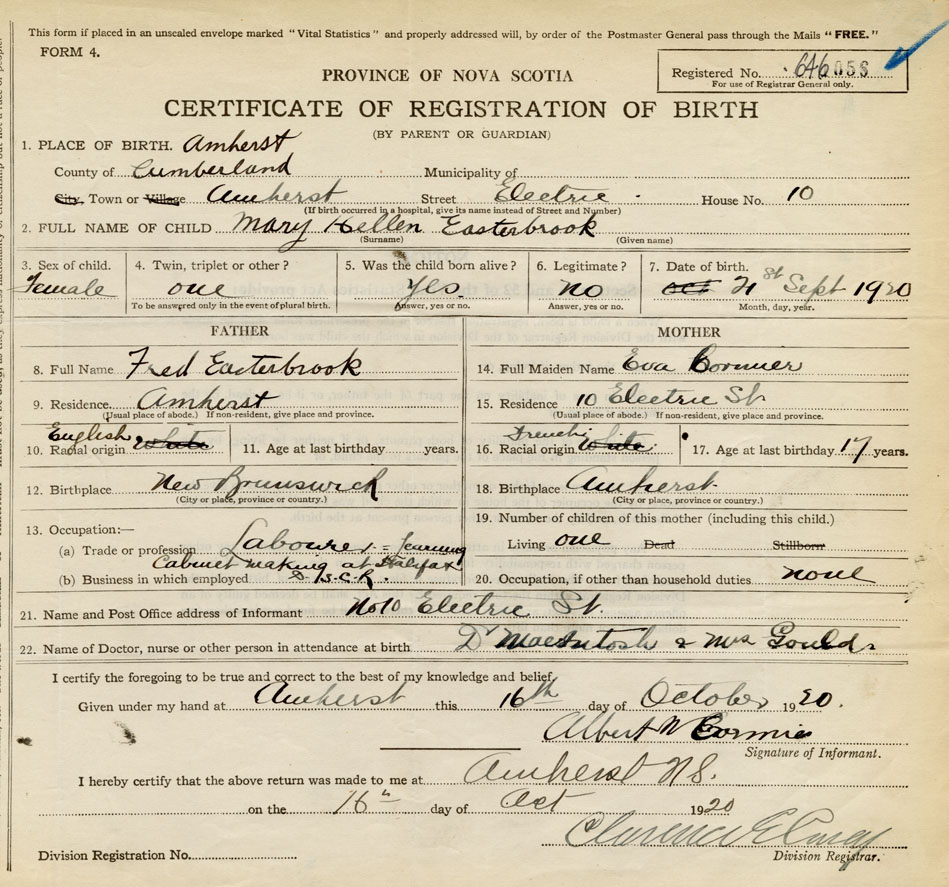 This form if placed in an unsealed envelope marked "Vital Statistics" and properly addressed will, by order of the Postmaster General pass through the Mails "FREE."
FORM 4.
Registered No. 646058
For use of Registrar General only.
PROVINCE OF NOVA SCOTIA
CERTIFICATE OF REGISTRATION OF BIRTH
(BY PARENT OR GUARDIAN)
1. PLACE OF BIRTH. Amherst
County of Cumberland Municipality of
City, Town or Village Amherst Street Electric House No. 10
(If birth occurred in a hospital, give its name instead of Street and Number)
2. FULL NAME OF CHILD Mary Hellen Easterbrook
(Surname) (Given name)
3. Sex of child. 4. Twin, triplet or other? 5. Was the child born alive? 6. Legitimate? 7. Date of birth.
Female one Yes. no Oct 21st Sept 1920
To be answered only in the event of plural birth. Answer, yes or no. Answer, yes or no. Month, day, year.
FATHER MOTHER
8. Full Name Fred Easterbrook
9. Residence Amherst
(Usual place of abode.) If non-resident, give place and province.
English
10. Racial origin White 11. Age at last birthday years.
12. Birthplace New Brunswick
(City or place, province or country.)
13. Occupation:—
(a) Trade or profession Labourer = learning
Cabinet making at Halifax
(b) Business in which employed D.S.C.R.
14. Full Maiden Name Eva Cormier
15. Residence 10 Electric St
(Usual place of abode.) If non-resident, give place and province.
French
16. Racial origin White 17. Age at last birthday 17 years.
18. Birthplace Amherst
(City or place, province or country.)
19. Number of children of this mother (including this child.)
Living one Dead Stillborn
20. Occupation, if other than household duties none
21. Name and Post Office address of Informant No 10 Electric St.
22. Name of Doctor, nurse or other person in attendance at birth Dr MacIntosh & Mrs Gould
I certify the foregoing to be true and correct to the best of my knowledge and belief.
Given under my hand at Amherst this 16th day of October 1920.
Albert N Cormier
Signature of Informant.
I hereby certify that the above return was made to me at Amherst N.S.
on the 16th day of Oct 1920
Clarence E
Division Registration No.
Division Registrar.